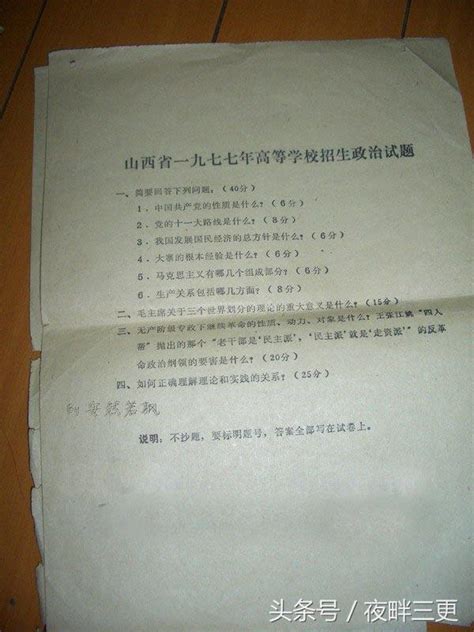 山西省一九七七年高等学校招生政治试题
一、简要回答下列问题：（40分）
1．中国共产党的性质是什么？（6分）
2．党的十一大路线是什么？（8分）
3．我国发展国民经济的总方针是什么？（6分）
4．大寨的根本经验是什么？（6分）
5．马克思主义有哪几个组成部分？（6分）
6．生产关系包括哪几方面？（8分）
二、毛主席关于三个世界划分的理论的重大意义是什么？（15分）
三、无产阶级专政下继续革命的性质、动力、对象是什么？王张江姚“四人
帮”抛出的那个“老干部是‘民主派’，‘民主派’就是‘走资派’”的反革
命政治纲领的要害是什么？（20分）
四、如何正确理解理论和实践的关系？（25分）
说明：不抄题，要标明题号，答案全部写在试卷上。
头条号／夜畔三更